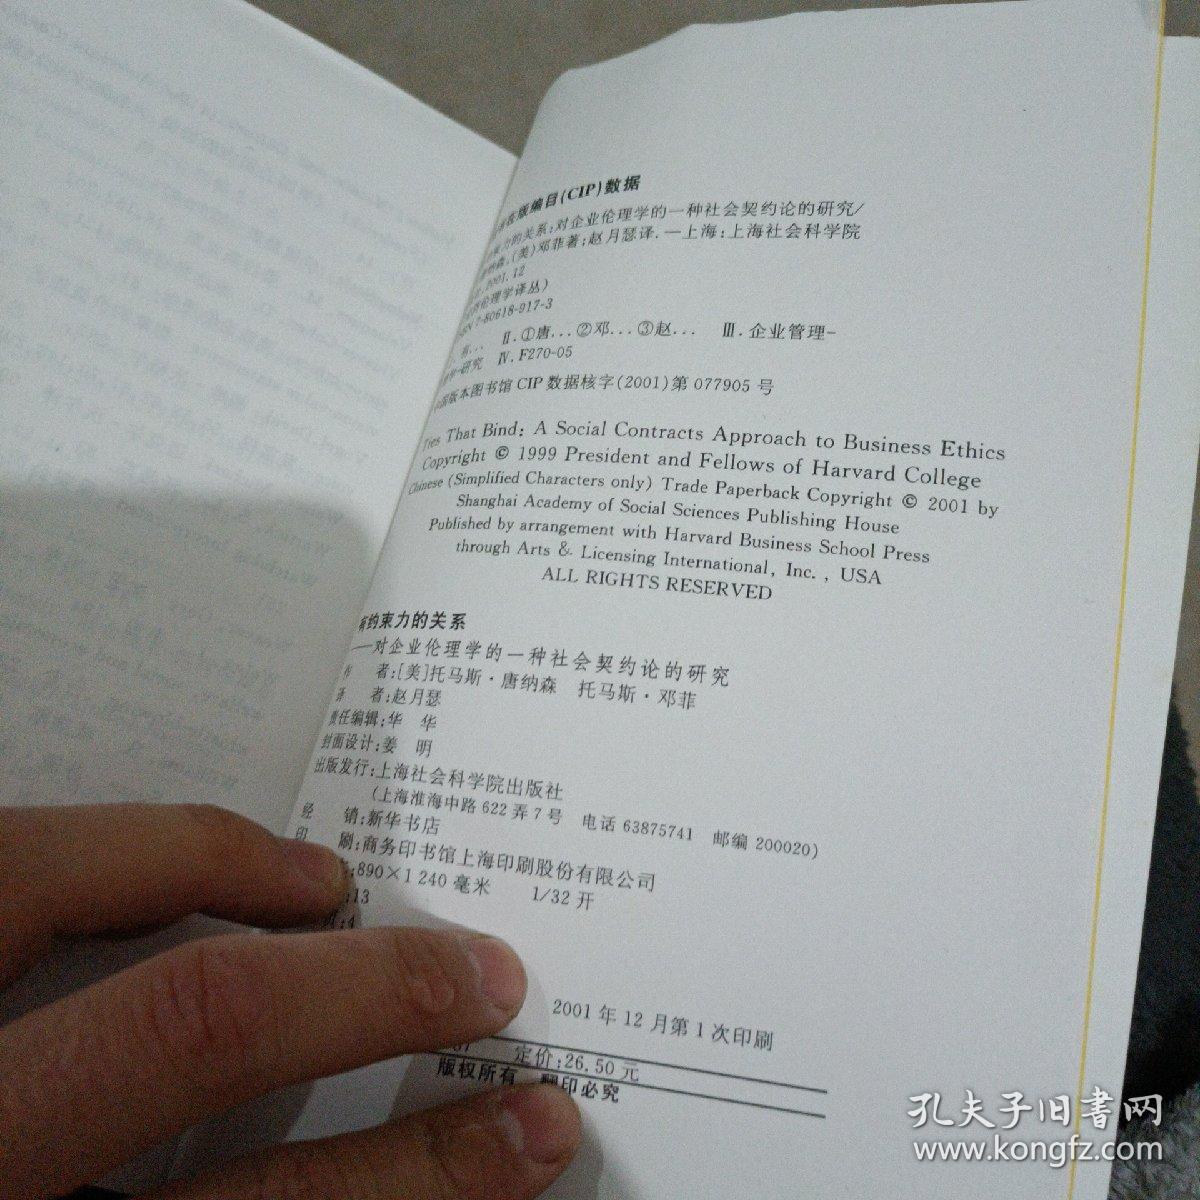 在版编目(CIP)数据
力的关系:对企业伦理学的一种社会契约论的研究/
(美)邓菲著;赵月瑟译.—上海:上海社会科学院
2001.12
伦理学译丛)
7-80618-917-3
Ⅱ.①唐...②邓...③赵... Ⅲ.企业管理-
研究 Ⅳ.F270-05
版本图书馆CIP数据核字(2001)第077905号
Ties That Bind: A Social Contracts Approach to Business Ethics
Copyright © 1999 President and Fellows of Harvard College
Chinese (Simplified Characters only) Trade Paperback Copyright © 2001 by
Shanghai Academy of Social Sciences Publishing House
Published by arrangement with Harvard Business School Press
through Arts & Licensing International, Inc., USA
ALL RIGHTS RESERVED
有约束力的关系
——对企业伦理学的一种社会契约论的研究
作 者:[美]托马斯·唐纳森 托马斯·邓菲
译 者:赵月瑟
责任编辑:华 华
封面设计:姜 明
出版发行:上海社会科学院出版社
(上海淮海中路622弄7号 电话63875741 邮编200020)
经 销:新华书店
印 刷:商务印书馆上海印刷股份有限公司
:890×1240毫米 1/32开
:13
:4
2001年12月第1次印刷
定价:26.50元
版权所有 翻印必究
孔夫子旧书网
www.kongfz.com